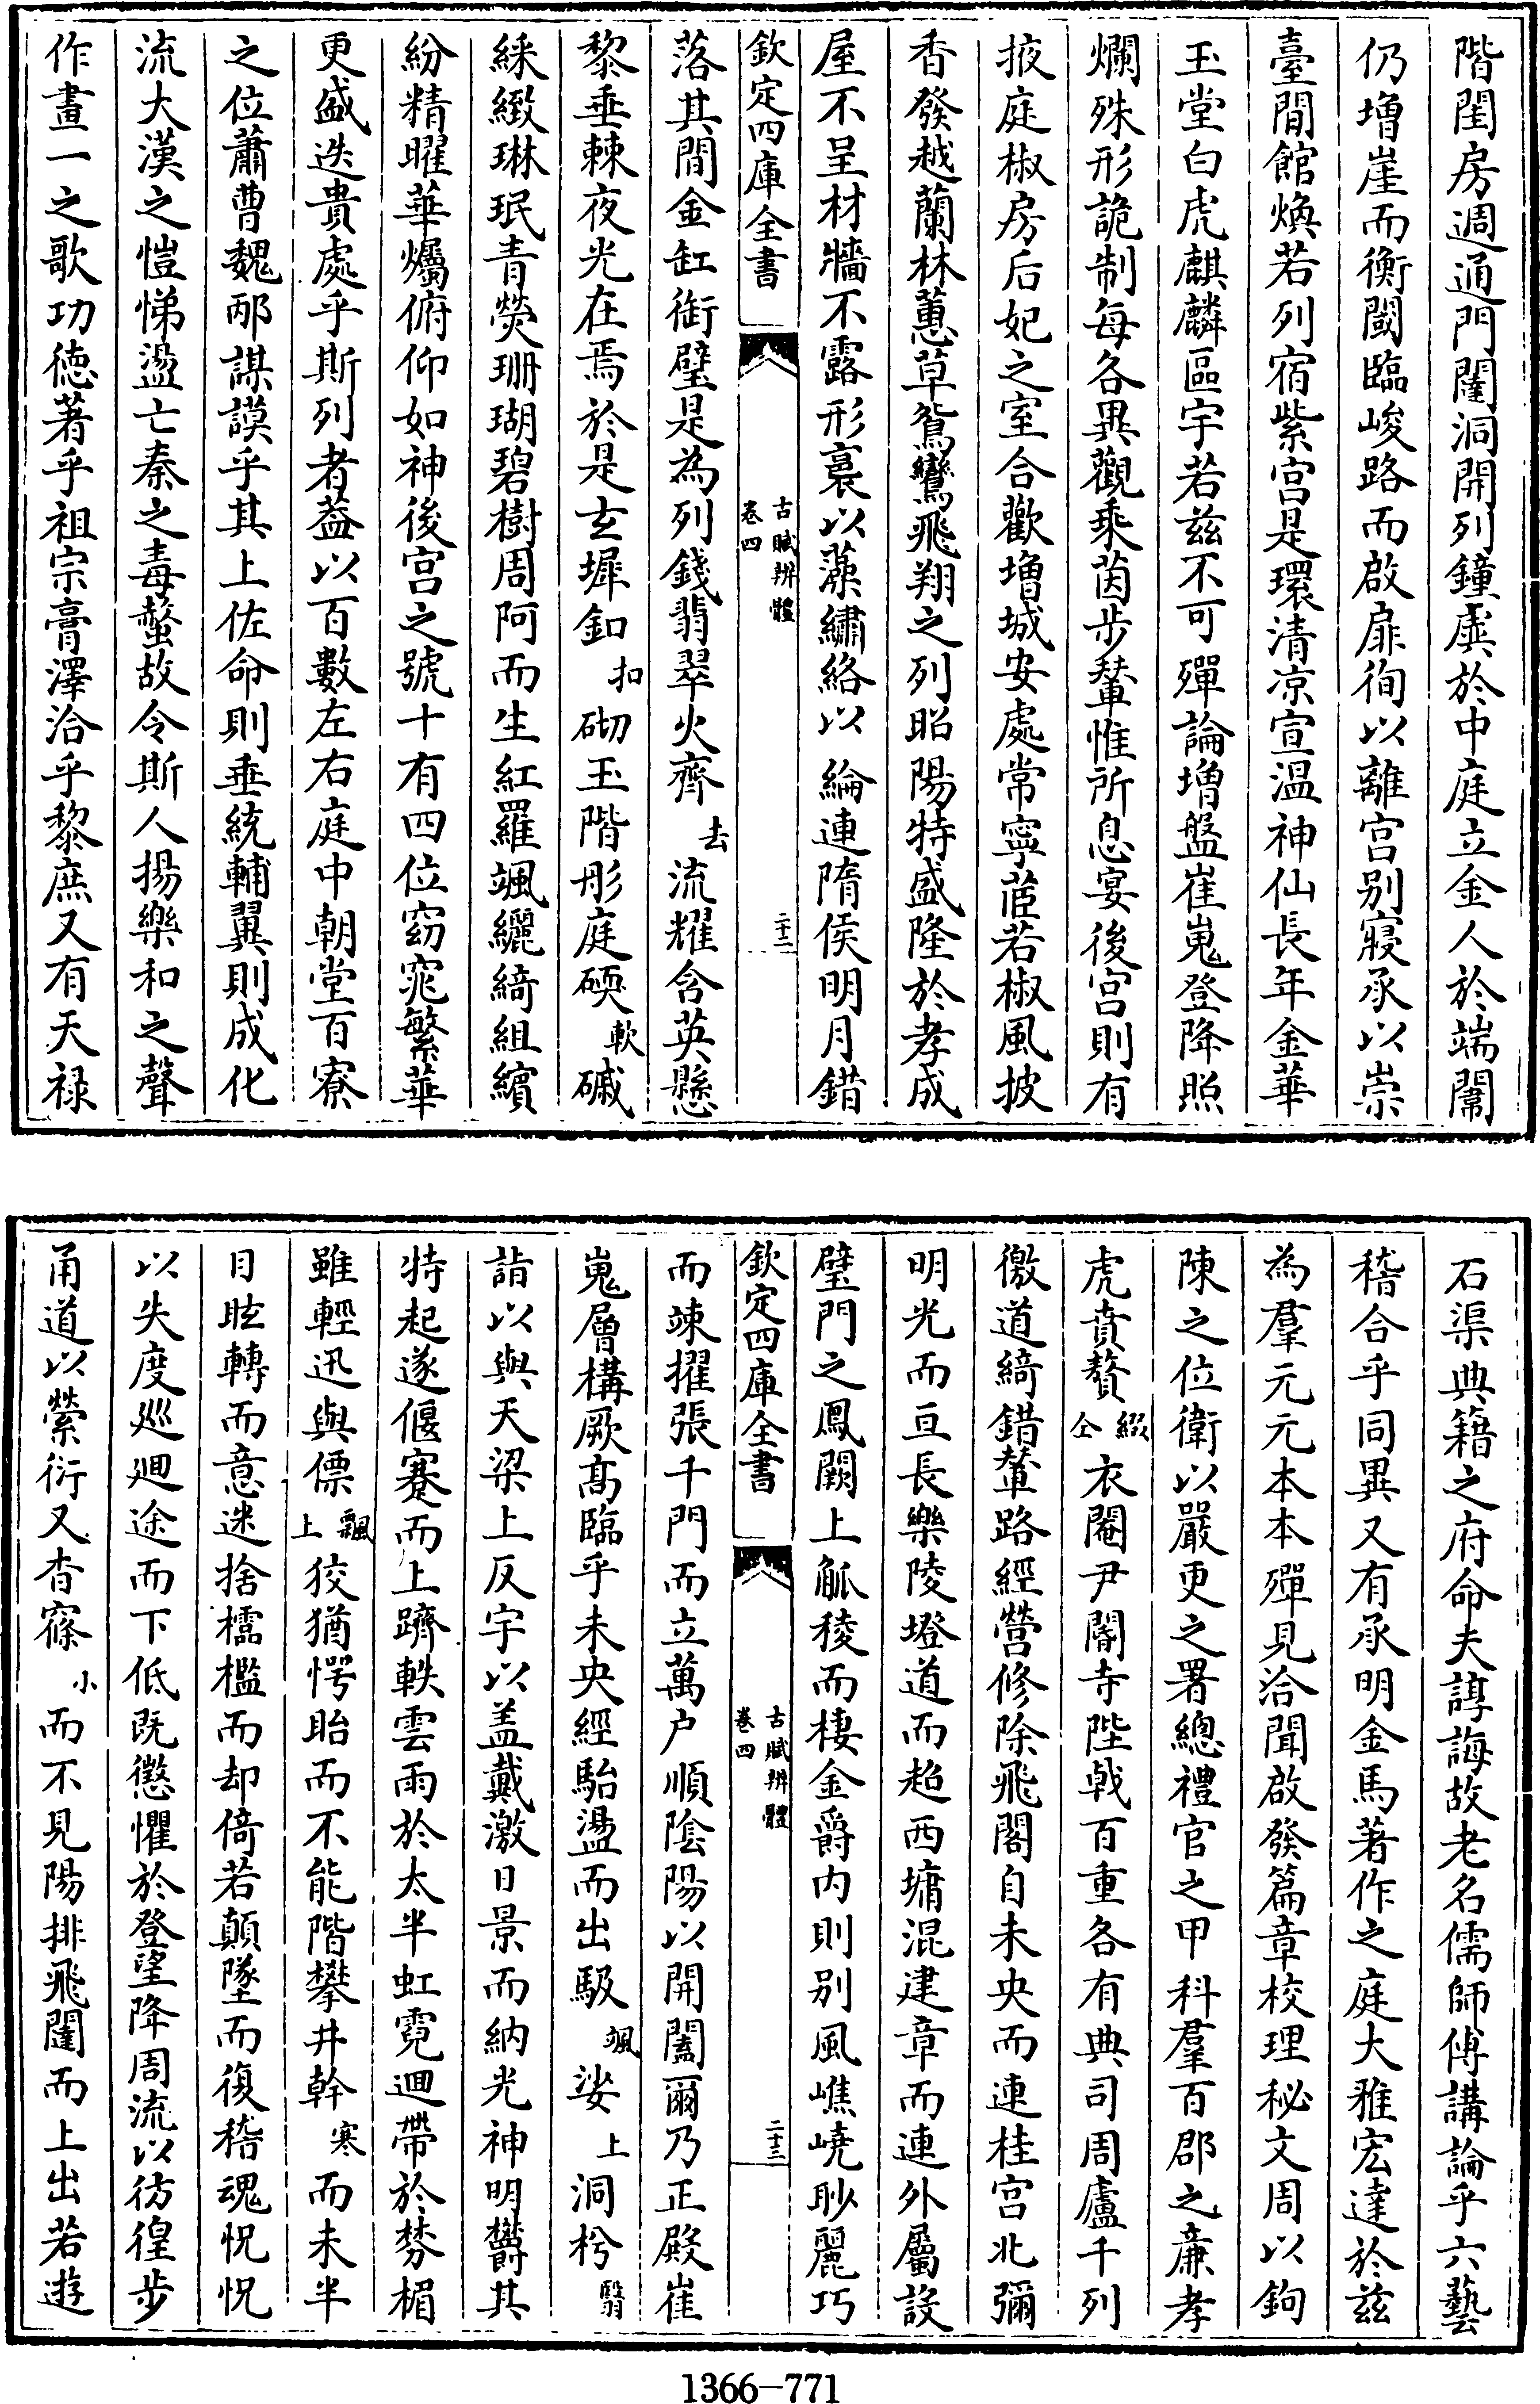 階閨房週通門闥洞開列鐘虡於中庭立金人於端闈
仍增崖而衡閾臨峻路而啟扉徇以離宮别寢承以崇
臺閒館煥若列宿紫宫是環清凉宣温神仙長年金華
玉堂白虎麒麟區宇若兹不可殫論增盤崔嵬登降炤
爛殊形詭制每各異觀乘茵步輦惟所息宴後宫則有
掖庭椒房后妃之室合歡增城安處常寧茝若椒風披
香發越蘭林蕙草鴛鸞飛翔之列昭陽特盛隆於孝成
屋不呈材牆不露形裛以藻繡絡以綸連隋侯明月錯
欽定四庫全書
古賦辨體
卷四
二十二
落其間金缸銜璧是為列錢翡翠火齊去流耀含英懸
黎垂棘夜光在焉於是玄墀釦扣砌玉階彤庭碝軟磩
綵緻琳珉青熒珊瑚碧樹周阿而生紅羅颯纚綺組繽
紛精曜華爥俯仰如神後宫之號十有四位窈窕繁華
更盛迭貴處乎斯列者葢以百數左右庭中朝堂百寮
之位蕭曹魏邴謀謨乎其上佐命則垂統輔翼則成化
流大漢之愷悌盪亡秦之毒螫故令斯人揚樂和之聲
作畫一之歌功德著乎祖宗膏澤洽乎黎庶又有天禄
石渠典籍之府命夫諄誨故老名儒師傅講論乎六藝
稽合乎同異又有承明金馬著作之庭大雅宏達於兹
為羣元元本本殫見洽聞啟發篇章校理秘文周以鉤
陳之位衛以嚴更之署總禮官之甲科羣百郡之亷孝
虎賁贅綴仝衣閹尹閽寺陛戟百重各有典司周廬千列
徼道綺錯輦路經營修除飛閣自未央而連桂宫北彌
明光而亘長樂陵墱道而超西墉混建章而連外屬設
璧門之鳳闕上觚稜而棲金爵内則别風嶕嶢眇麗巧
欽定四庫全書
古賦辨體
卷四
二十三
而竦擢張千門而立萬户順陰陽以開闔爾乃正殿崔
嵬層構厥髙臨乎未央經駘盪而出馺颯娑上洞枍翳
詣以與天梁上反宇以盖戴激日景而納光神明欝其
特起遂偃蹇而上躋軼雲雨於太半虹霓迴帶於棼楣
雖輕迅與僄飄上狡猶愕眙而不能階攀井幹寒而未半
目眩轉而意迷捨櫺檻而却倚若顛墜而復稽魂怳怳
以失度廵迴途而下低既懲懼於登望降周流以彷徨步
甬道以縈衍又杳窱小而不見陽排飛闥而上出若遊
1366-771